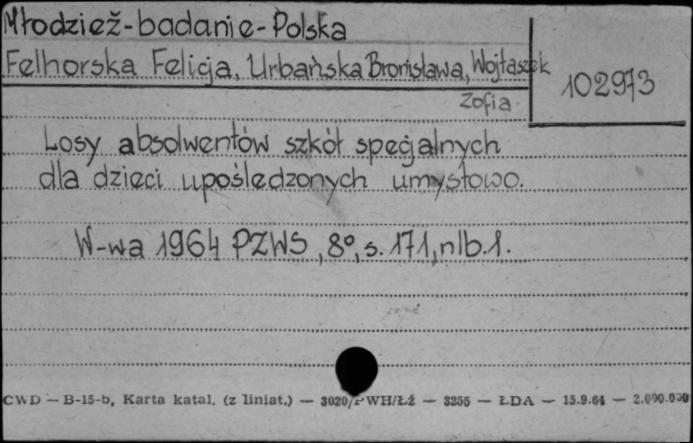 Młodzież-badanie-Polska
Felhorska Felicja, Urbańska Bronisława, Wojtaszek
Zofia
102973
Losy absolwentów szkół specjalnych
dla dzieci upośledzonych umysłowo.
W-wa 1964 PZWS, 8°, s. 171, nlb. 1.
CWD — B-15-b, Karta katal. (z liniat.) — 3020/PWH/ŁŹ — 3255 — ŁDA — 15.9.64 — 2.000.000